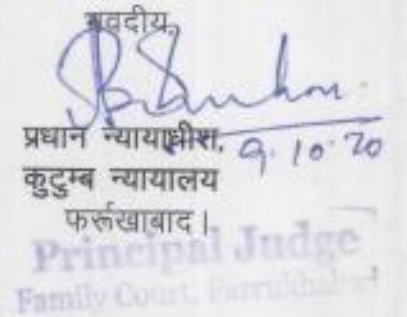 भवदीय,
प्रधान न्यायाधीश, 9.10.20
कुटुम्ब न्यायालय
फर्रूखाबाद।
Principal Judge
Family Court, Farrukhabad